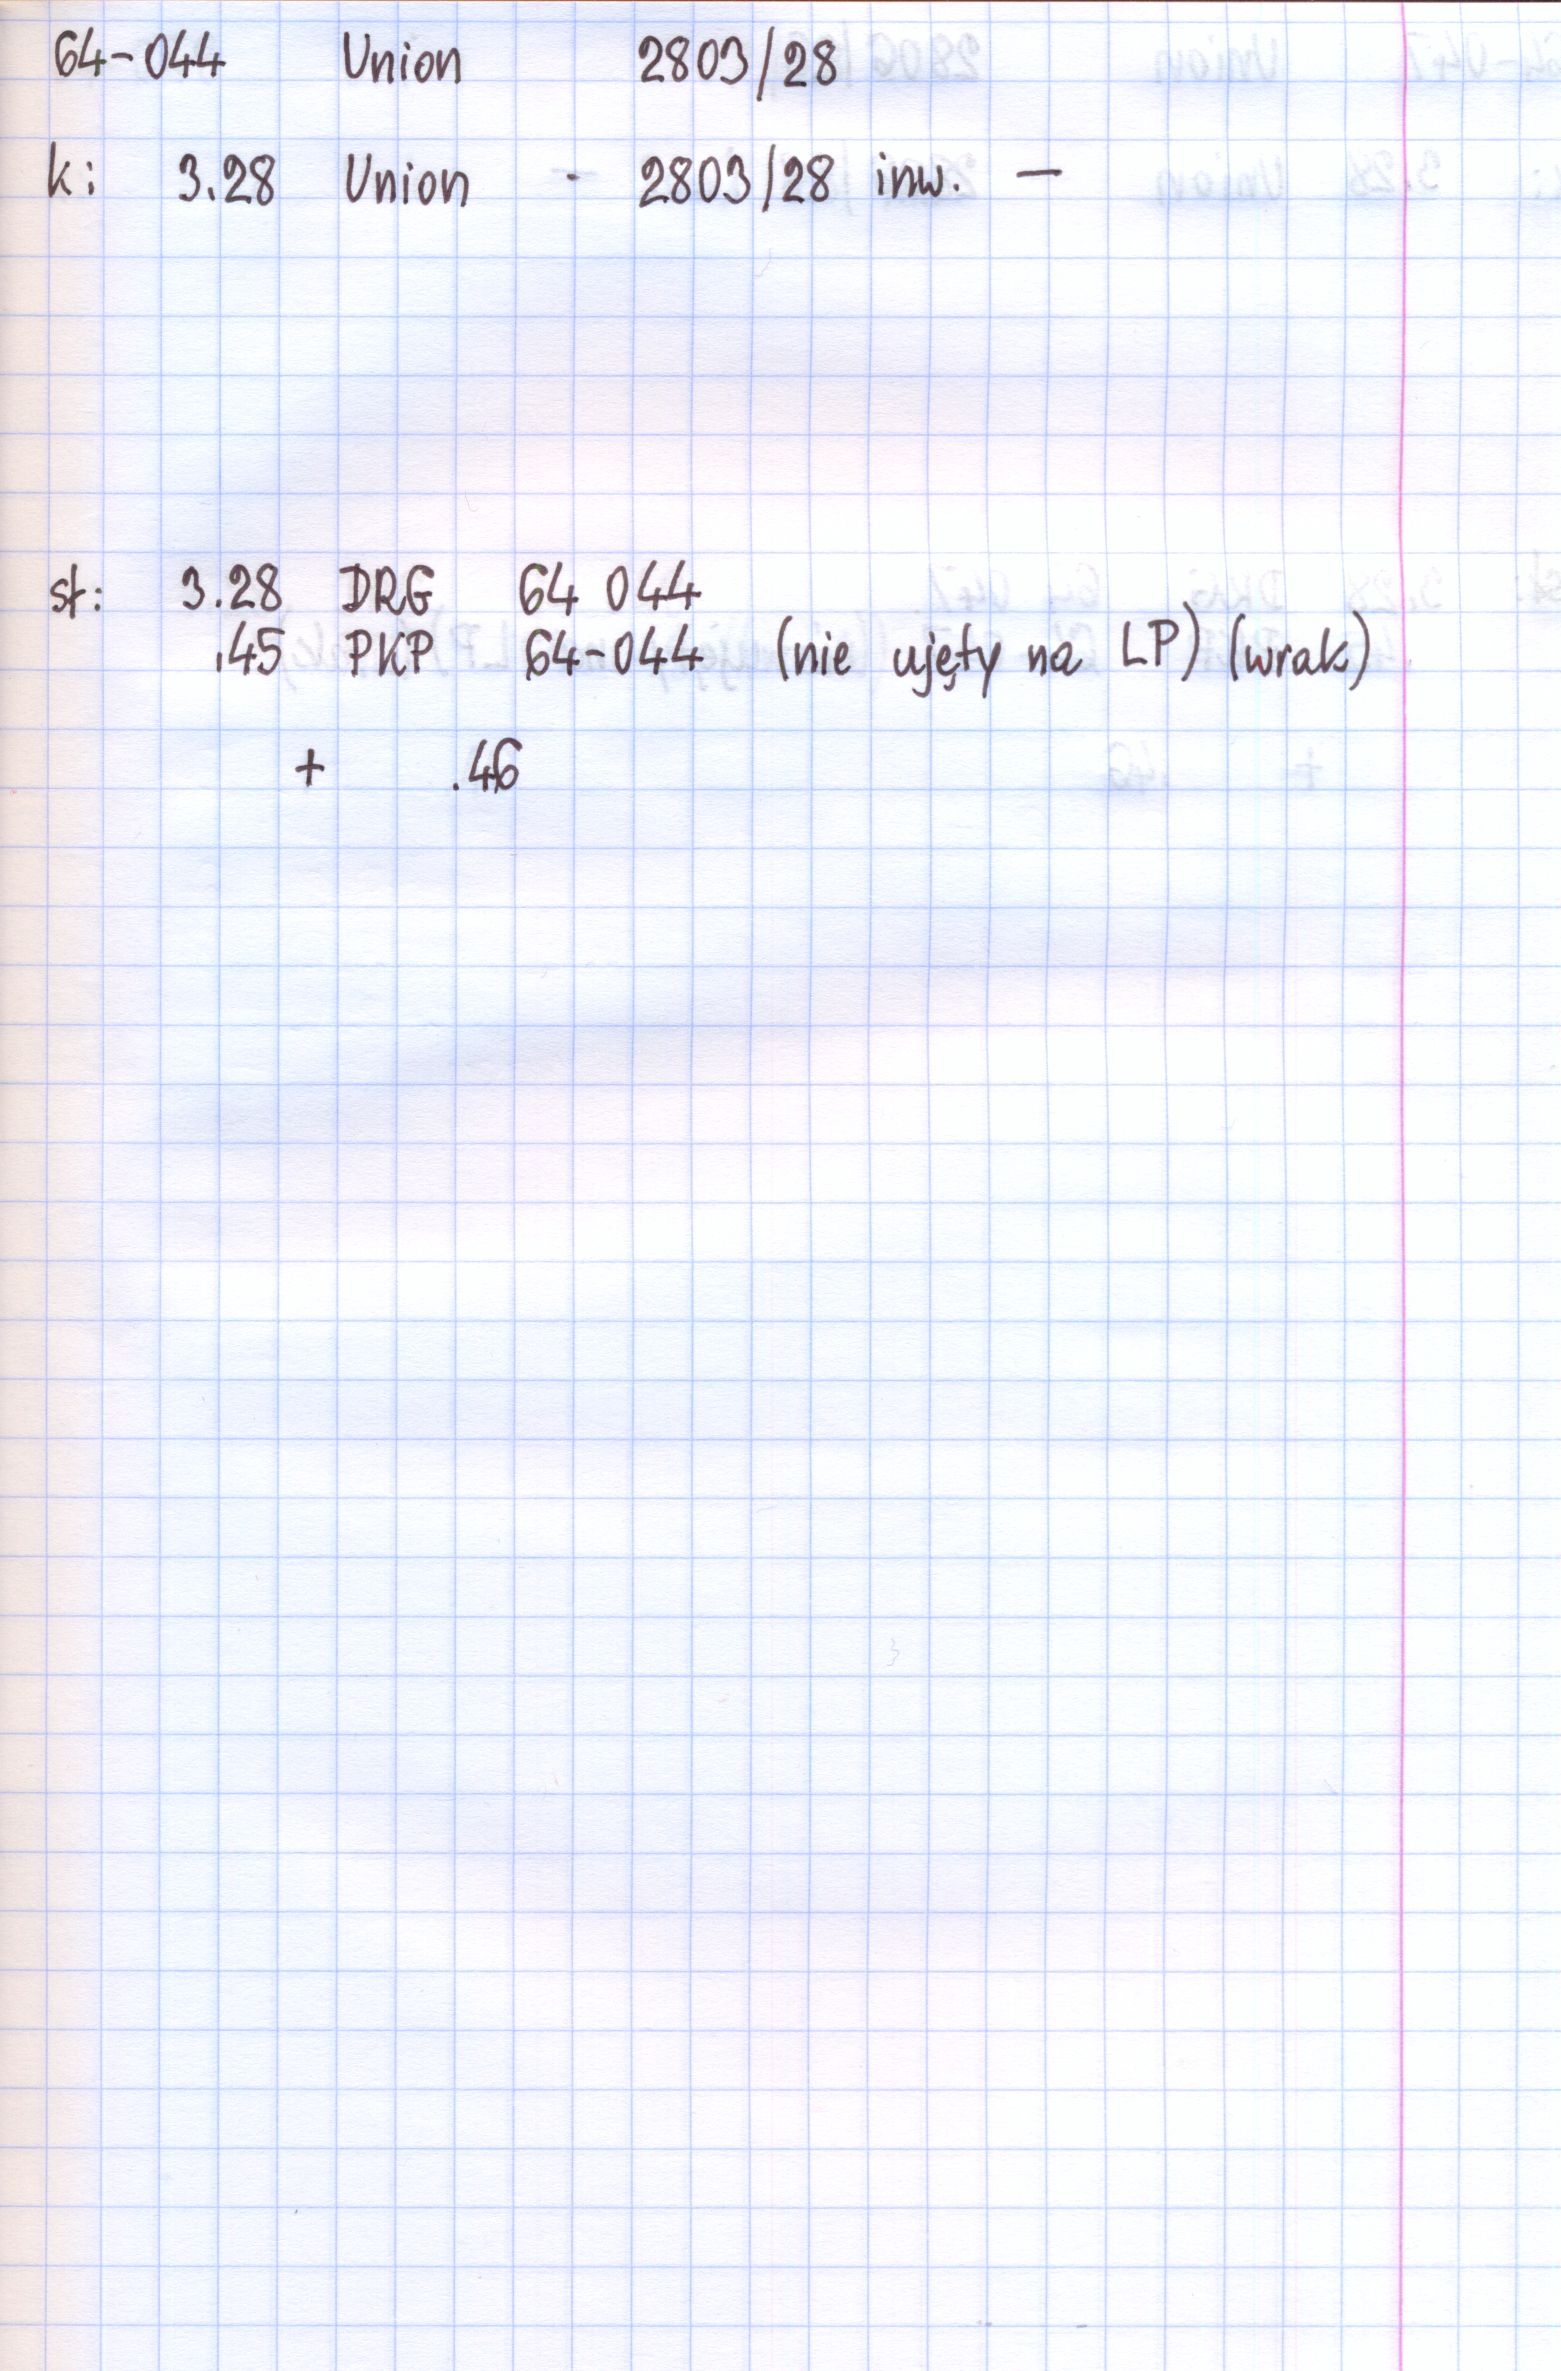 64-044 Union 2803/28
k: 3.28 Union - 2803/28 inw. —
st: 3.28 DRG 64 044
.45 PKP 64-044 (nie ujęty na LP) (wrak)
+ .46